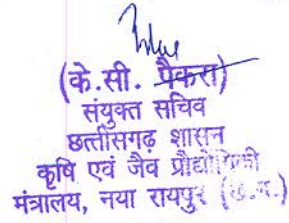 (के.सी. पैकरा)
संयुक्त सचिव
छत्तीसगढ़ शासन
कृषि एवं जैव प्रौद्योगिकी
मंत्रालय, नया रायपुर (छ.ग.)